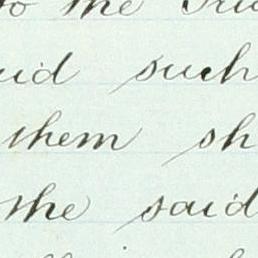 to the
uid such
them sh
the said